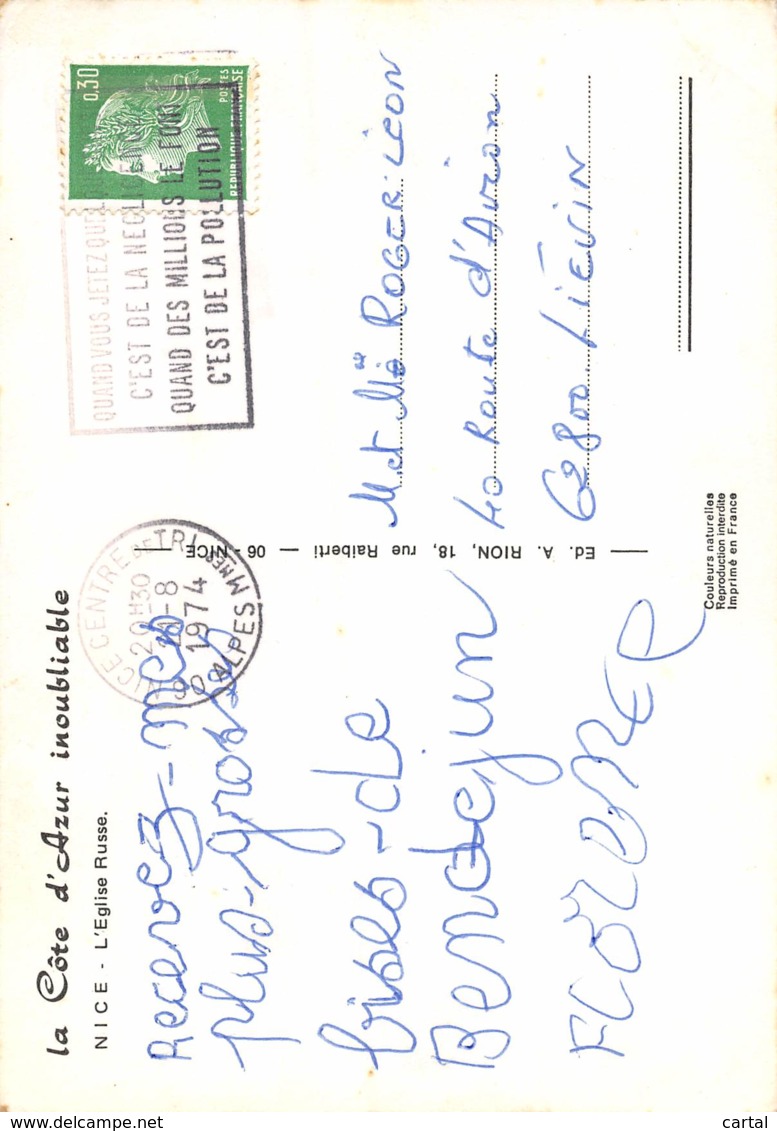 la Côte d'Azur inoubliable
NICE - L'Eglise Russe.
Recevez-mes
plus-grosses
bises-de
Bendejun
FLORIMER
Ed. A. RION, 18, rue Raiberti — 06 - NICE
NICE CENTRE DE TRI
20H30
21-8
1974
06 ALPES MMES
0,30
POSTES
REPUBLIQUE FRANÇAISE
QUAND VOUS JETEZ
C'EST DE LA NEGLIGENCE
QUAND DES MILLIONS LE FONT
C'EST DE LA POLLUTION
M et Me ROGER. LÉON
40 Route d'Avion
62800. LIÉVIN
Couleurs naturelles
Reproduction interdite
Imprimé en France
cartal